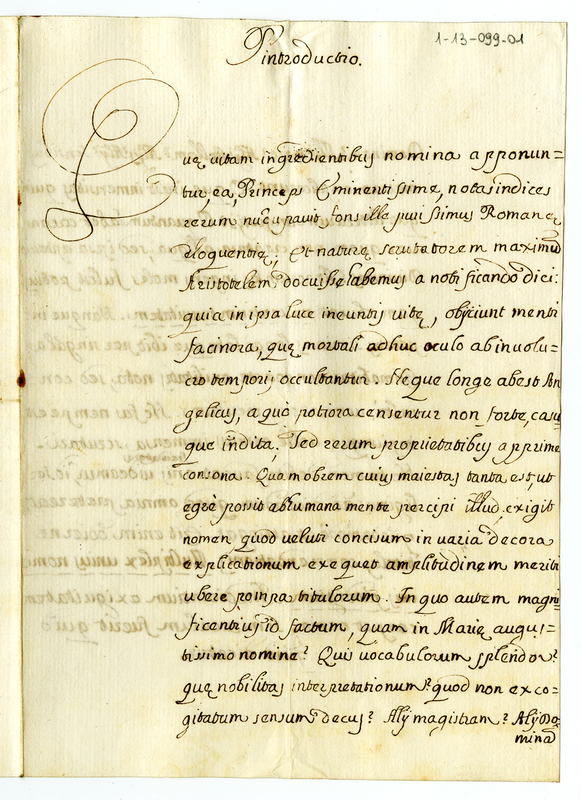 1-13-099-01
Pintroductio.
Quę vitam ingredientibus nomina apponun=
tur, ea, Princeps Eminentissime, notas indices
rerum nūcupavit fons ille purissimus Romanę
eloquentię; et naturę scrutatorem maximū
Aristotelem docuisse habemus a notificando dici:
quia in ipsa luce ineuntis vitę, obijciunt menti
facinora, quę mortali adhuc oculo ab involu=
cro temporis occultantur. Neque longe abest An
gelicus, a quo potiora censentur non forte, casu
que indita; sed rerum proprietatibus apprime
consona. Quamobrem cuius maiestas tanta est, ut
egrè possit ab humana mente percipi illud, exigit
nomen quod veluti concisum in varia decora
explicationum exequet amplitudinem meriti
ubere pompa titulorum. In quo autem magni
ficentius id factum, quam in Marię augu=
stissimo nomine? Quis vocabulorum splendor?
quę nobilitas interpretationum? quod non exco=
gitatum sensum decus? Alij magistram? Alij Do=
minā